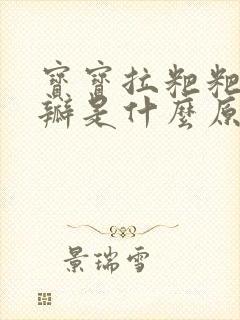 寶寶拉粑粑
瓣是什麼原
景瑞雪